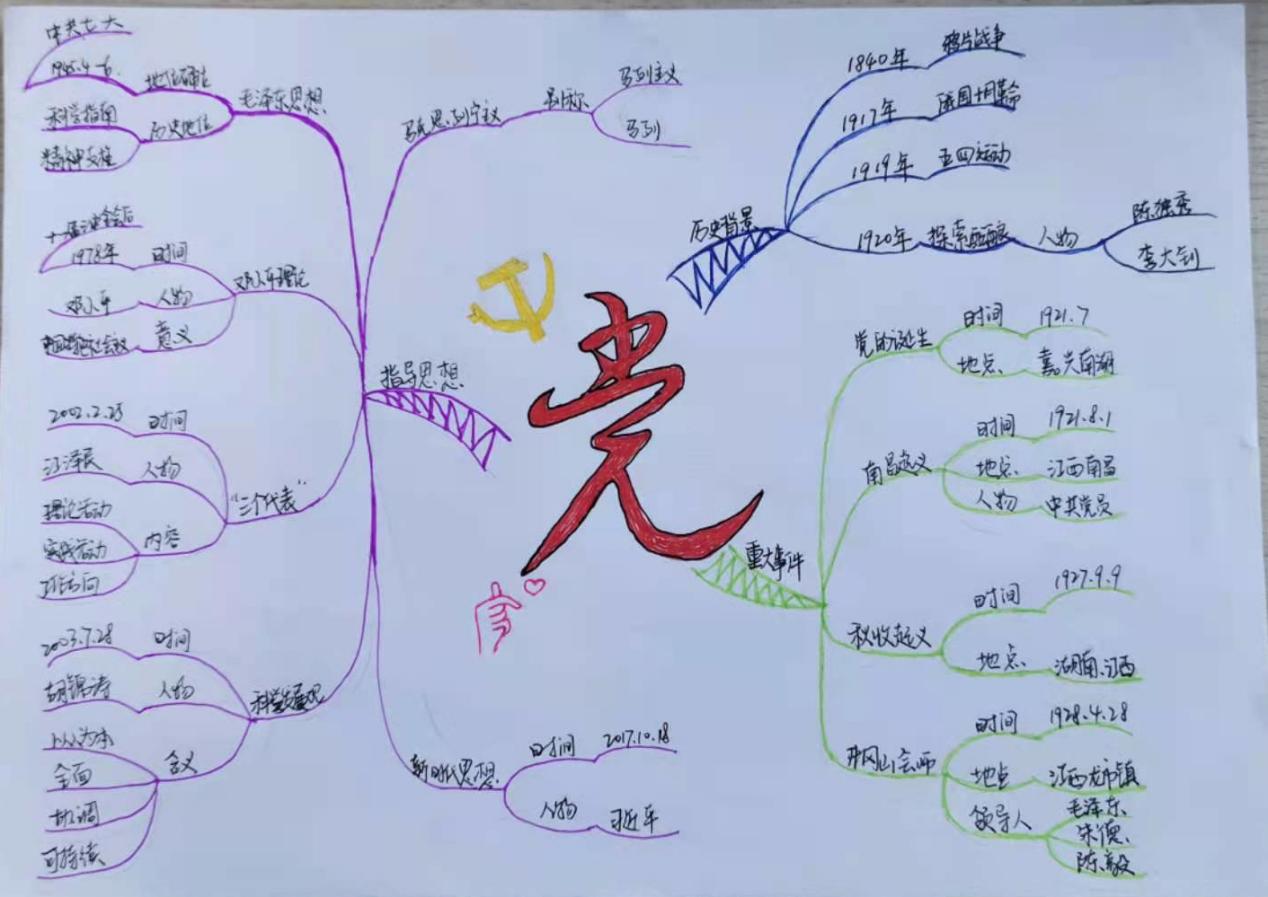 党
历史背景
1840年
鸦片战争
1917年
俄国十月革命
1919年
五四运动
1920年
探索酝酿
人物
陈独秀
李大钊
重大事件
党的诞生
时间
1921.7
地点
嘉兴南湖
南昌起义
时间
1921.8.1
地点
江西南昌
人物
中共党员
秋收起义
时间
1927.9.9
地点
湖南、江西
井冈山会师
时间
1928.4.28
地点
江西龙市镇
领导人
毛泽东、
朱德、
陈毅
指导思想
马克思列宁主义
别称
马列主义
马列
毛泽东思想
地位确立
中共七大
历史地位
科学指南
精神支柱
邓小平理论
时间
1978年
人物
邓小平
意义
“三个代表”
时间
2002.2.25
人物
江泽民
内容
理论活动
实践活动
科学发展观
时间
2003.7.28
人物
胡锦涛
含义
以人为本
全面
协调
可持续
新时代思想
时间
2017.10.18
人物
习近平